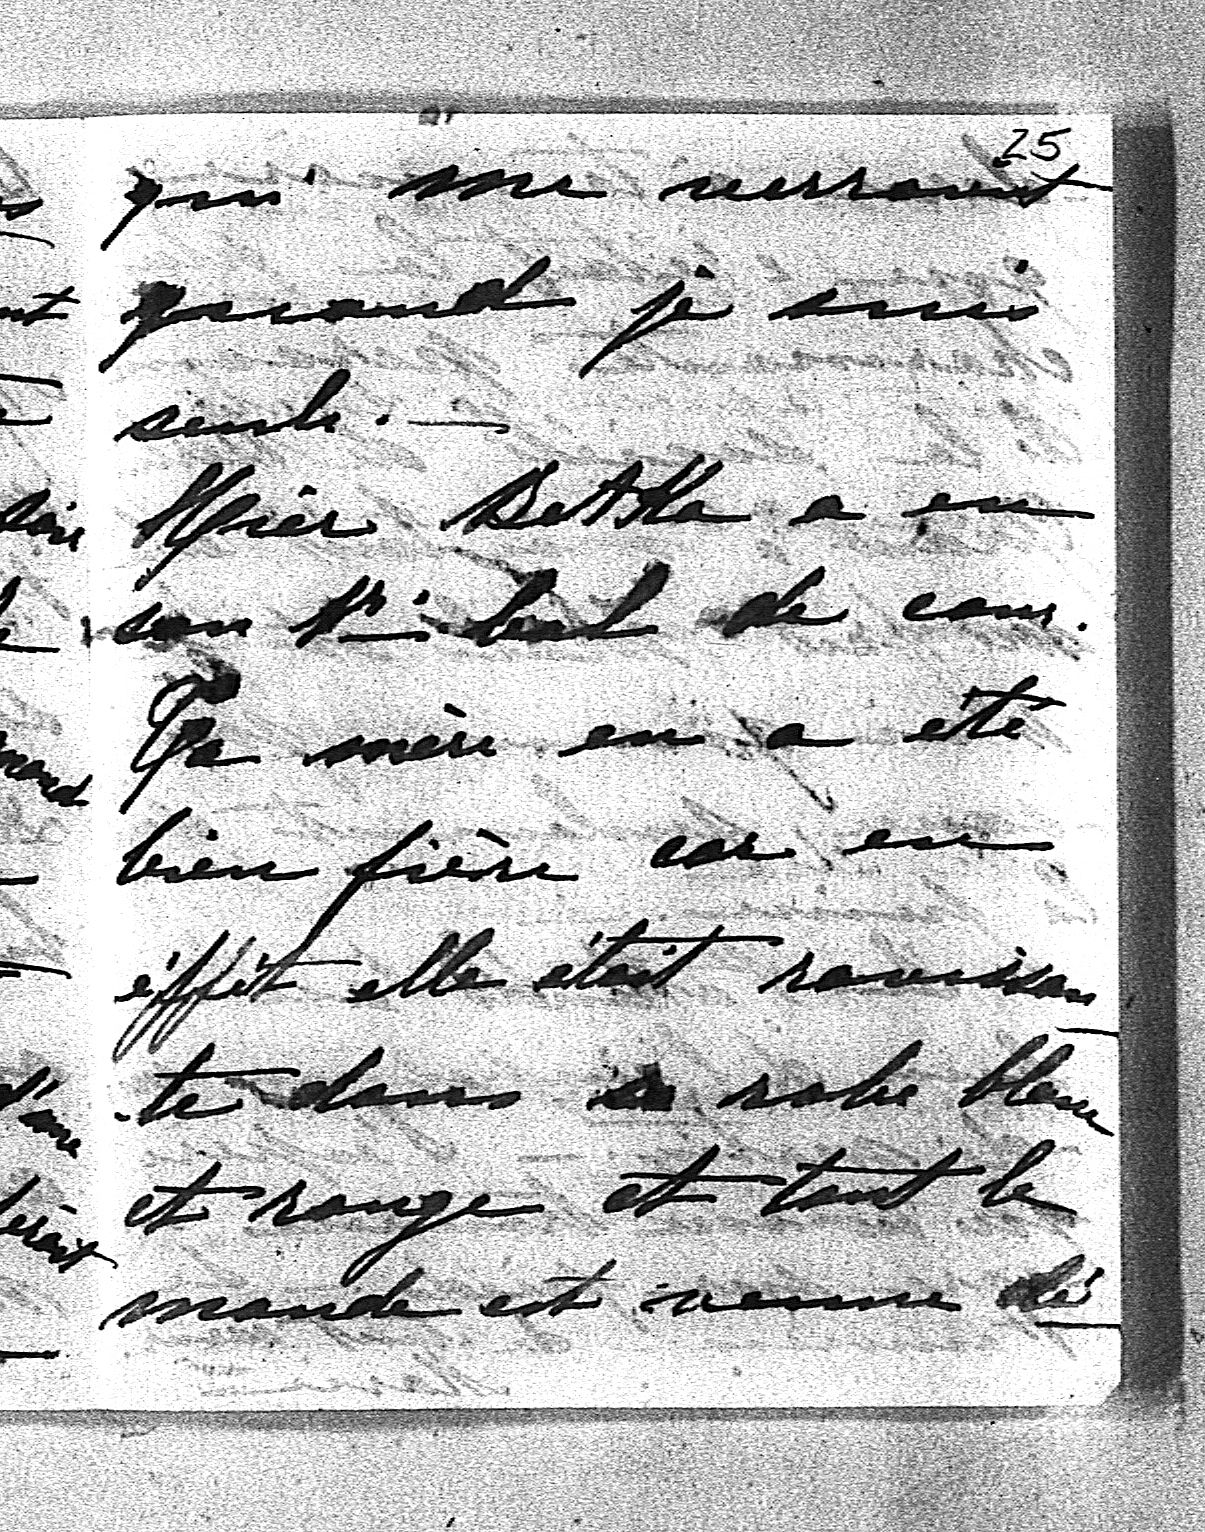 25
qui me verraient
quand je suis
seule. —
Hier Bettha a eu
son 1r. bal de cour.
Ta mère en a été
bien fière car en
éffét elle était ravissan
te dans sa robe bleue
et rouge et tout le
monde est venue dé